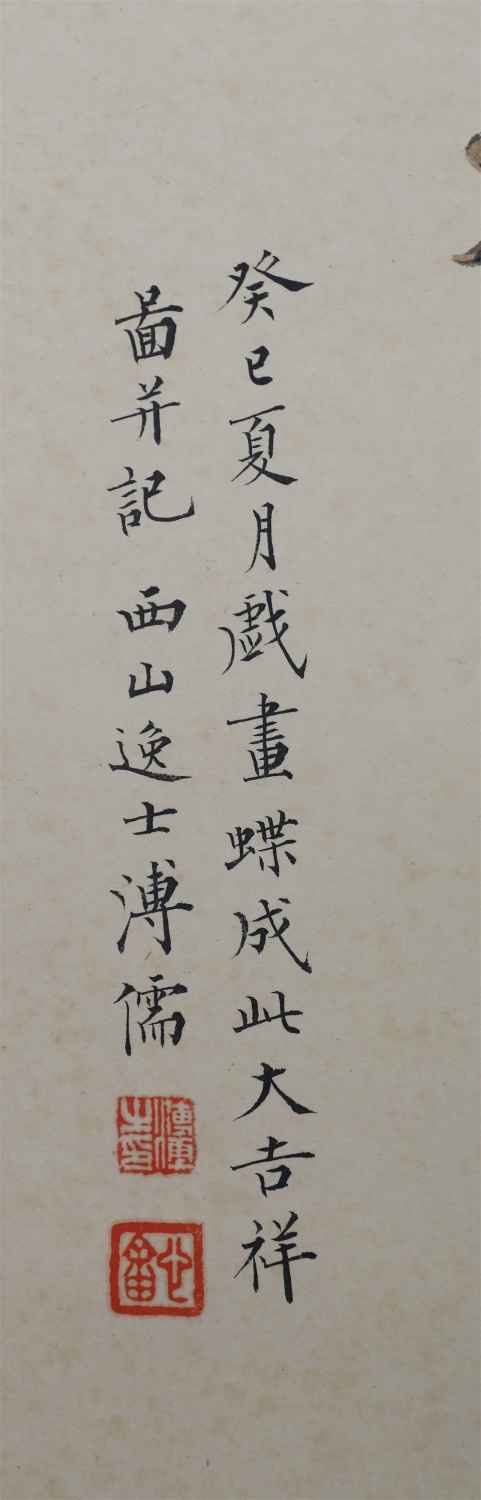 癸巳夏月戲畫蝶成此大吉祥
啚并記 西山逸士溥儒
溥儒之印